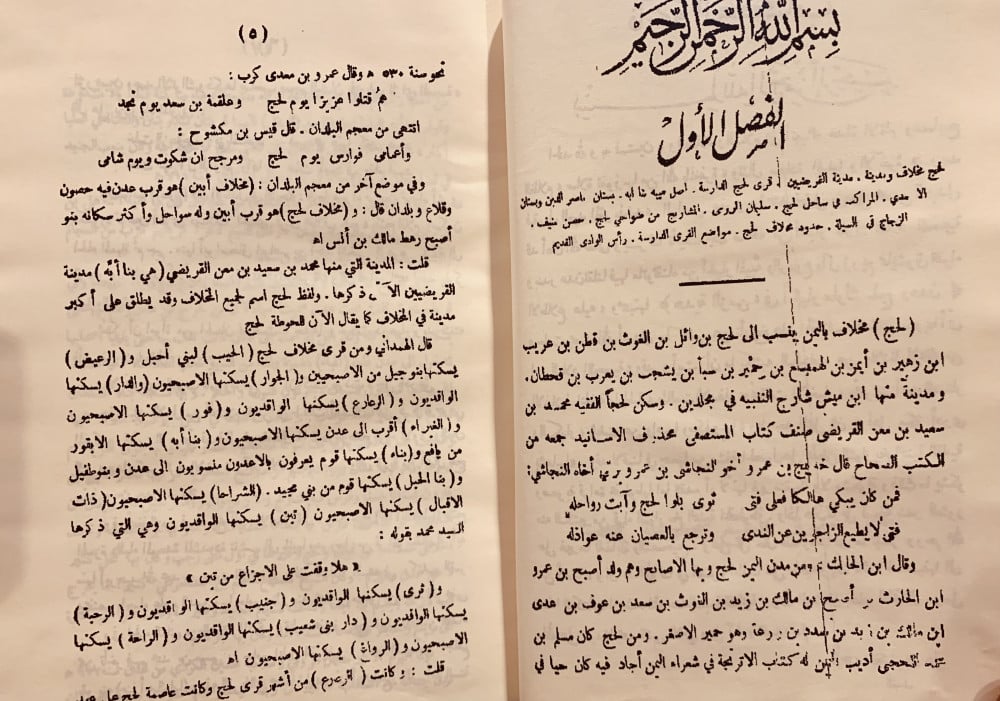 بسم الله الرحمن الرحيم
الفصل الأول
لحج مخلاف ومدينة . مدينة القريضيين . قرى لحج الدارسة . اصل ميبه بنا ابه . بستان ناصر الدين وبستان
الاسدي . المراكمة في ساحل لحج . سلمان الرومى . المشاريج من ضواحي لحج . حصن منيف .
الزجاج في السيلة . حدود مخلاف لحج . مواضع القرى الدارسة . رأس الوادى القديم
( لحج ) مخلاف باليمن ينسب الى لحج بن وائل بن الغوث بن قطن بن عريب
ابن زهير بن أيمن بن الهميسع بن حمير بن سبأ بن يشجب بن يعرب بن قحطان .
ومدينة منها ابن ميش شارح التنبيه في مجلدين . وسكن لحجاً الفقيه محمد بن
سعيد بن معن القريضى صنف كتاب المستصفى محذوف الاسانيد جمعه من
الكتب الصحاح قال خديج بن عمرو أخو النجاشى بن عمرو يرثي أخاه النجاشي :
فمن كان يبكي هالكا فعلى فتى ثوى بلوا لحج وآبت رواحله
فتى لا يطيع الزاجرين عن الندى وترجع بالعصيان عنه عواذله
وقال ابن الحائك ومن مدن اليمن لحج وبها الاصابح وهم ولد أصبح بن عمرو
ابن الحارث بن أصبح بن مالك بن زيد بن الغوث بن سعد بن عوف بن عدى
ابن مالك بن زيد بن سدد بن زرعة وهو حمير الاصغر . ومن لحج كان مسلم بن
محمد اللحجى أديب اليمن له كتاب الاترنجة في شعراء اليمن أجاد فيه كان حيا في
(٥)
نحو سنة ٥٣٠ ه وقال عمرو بن معدى كرب :
همُ قتلوا عزيزا يوم لحج وعلقمة بن سعد يوم نجد
انتهى من معجم البلدان . قال قيس بن مكشوح :
وأعمامى فوارس يوم لحج ومرجح ان شكوت ويوم شامى
وفي موضع آخر من معجم البلدان : ( مخلاف أبين ) هو قرب عدن فيه حصون
وقلاع وبلدان قال : و ( مخلاف لحج ) هو قرب أبين وله سواحل وأكثر سكانه بنو
أصبح رهط مالك بن أنس اه
قلت : المدينة التي منها محمد بن سعيد بن معن القريضي ( هي بنا أبّه ) مدينة
القريضيين الآتى ذكرها . ولفظ لحج اسم لجميع المخلاف وقد يطلق على أكبر
مدينة في المخلاف كما يقال الآن للحوطة لحج
قال الهمداني ومن قرى مخلاف لحج ( الحبيب ) لبني أحبل و ( الرعيض )
يسكنها بنو جيل من الاصبحيين و ( الجوار ) يسكنها الاصبحيون ( والدار ) يسكنها
الواقديون و ( الرعارع ) يسكنها الواقديون و ( فور ) يسكنها الاصبحيون
و ( الغبراء ) أقرب الى عدن يسكنها الاصبحيون و ( بنا أبه ) يسكنها الابقور
من يافع و ( بناء ) يسكنها قوم يعرفون بالاعدون منسوبون الى عدن وبنو طفيل
و ( بنا الحبل ) يسكنها قوم من بني مجيد . ( الشراحا ) يسكنها الاصبحيون ( ذات
الاقبال ) يسكنها الاصبحيون ( تبن ) يسكنها الواقديون وهي التي ذكرها
السيد محمد بقوله :
« هلا وقفت على الاجزاع من تبن »
و ( ثرى ) يسكنها الواقديون و ( جنيب ) يسكنها الواقديون و ( الرحبة )
يسكنها الواقديون و ( دار بنى شعيب ) يسكنها الواقديون و ( الراحة ) يسكنها
الاصبحيون و ( الرواغ ) يسكنها الاصبحيون اه
قلت : وكانت ( الرعارع ) من أشهر قرى لحج وكانت عاصمة لحج